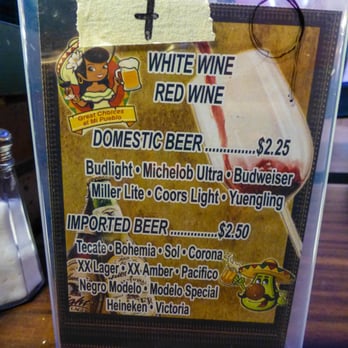 WHITE WINE
RED WINE
Great Choices
at Mi Pueblo
DOMESTIC BEER ..............$2.25
Budlight • Michelob Ultra • Budweiser
Miller Lite • Coors Light • Yuengling
IMPORTED BEER ............$2.50
Tecate • Bohemia • Sol • Corona
XX Lager • XX Amber • Pacifico
Negro Modelo • Modelo Special
Heineken • Victoria